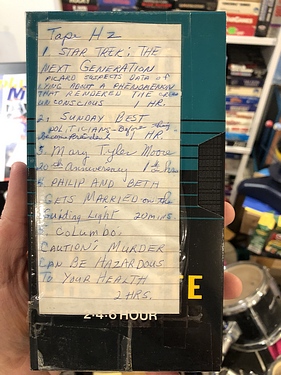 Tape Hz
1. STAR TREK: THE
NEXT GENERATION
PICARD SUSPECTS DATA of
LYING ABOUT A PHENOMENON
THAT RENDERED THE CREW
UNCONSCIOUS 1 HR.
2. SUNDAY BEST
POLITICIANS-Before They
1 HR.
3. Mary Tyler Moore
20th Anniversary 1½ Hours
5. PHILIP AND BETH
GETS MARRIED on the
Guiding Light 20 mins.
5. Columbo:
CAUTION: MURDER
CAN BE HAZARDOUS
TO YOUR HEALTH
2 HRS.
TE
2·4·6 HOUR